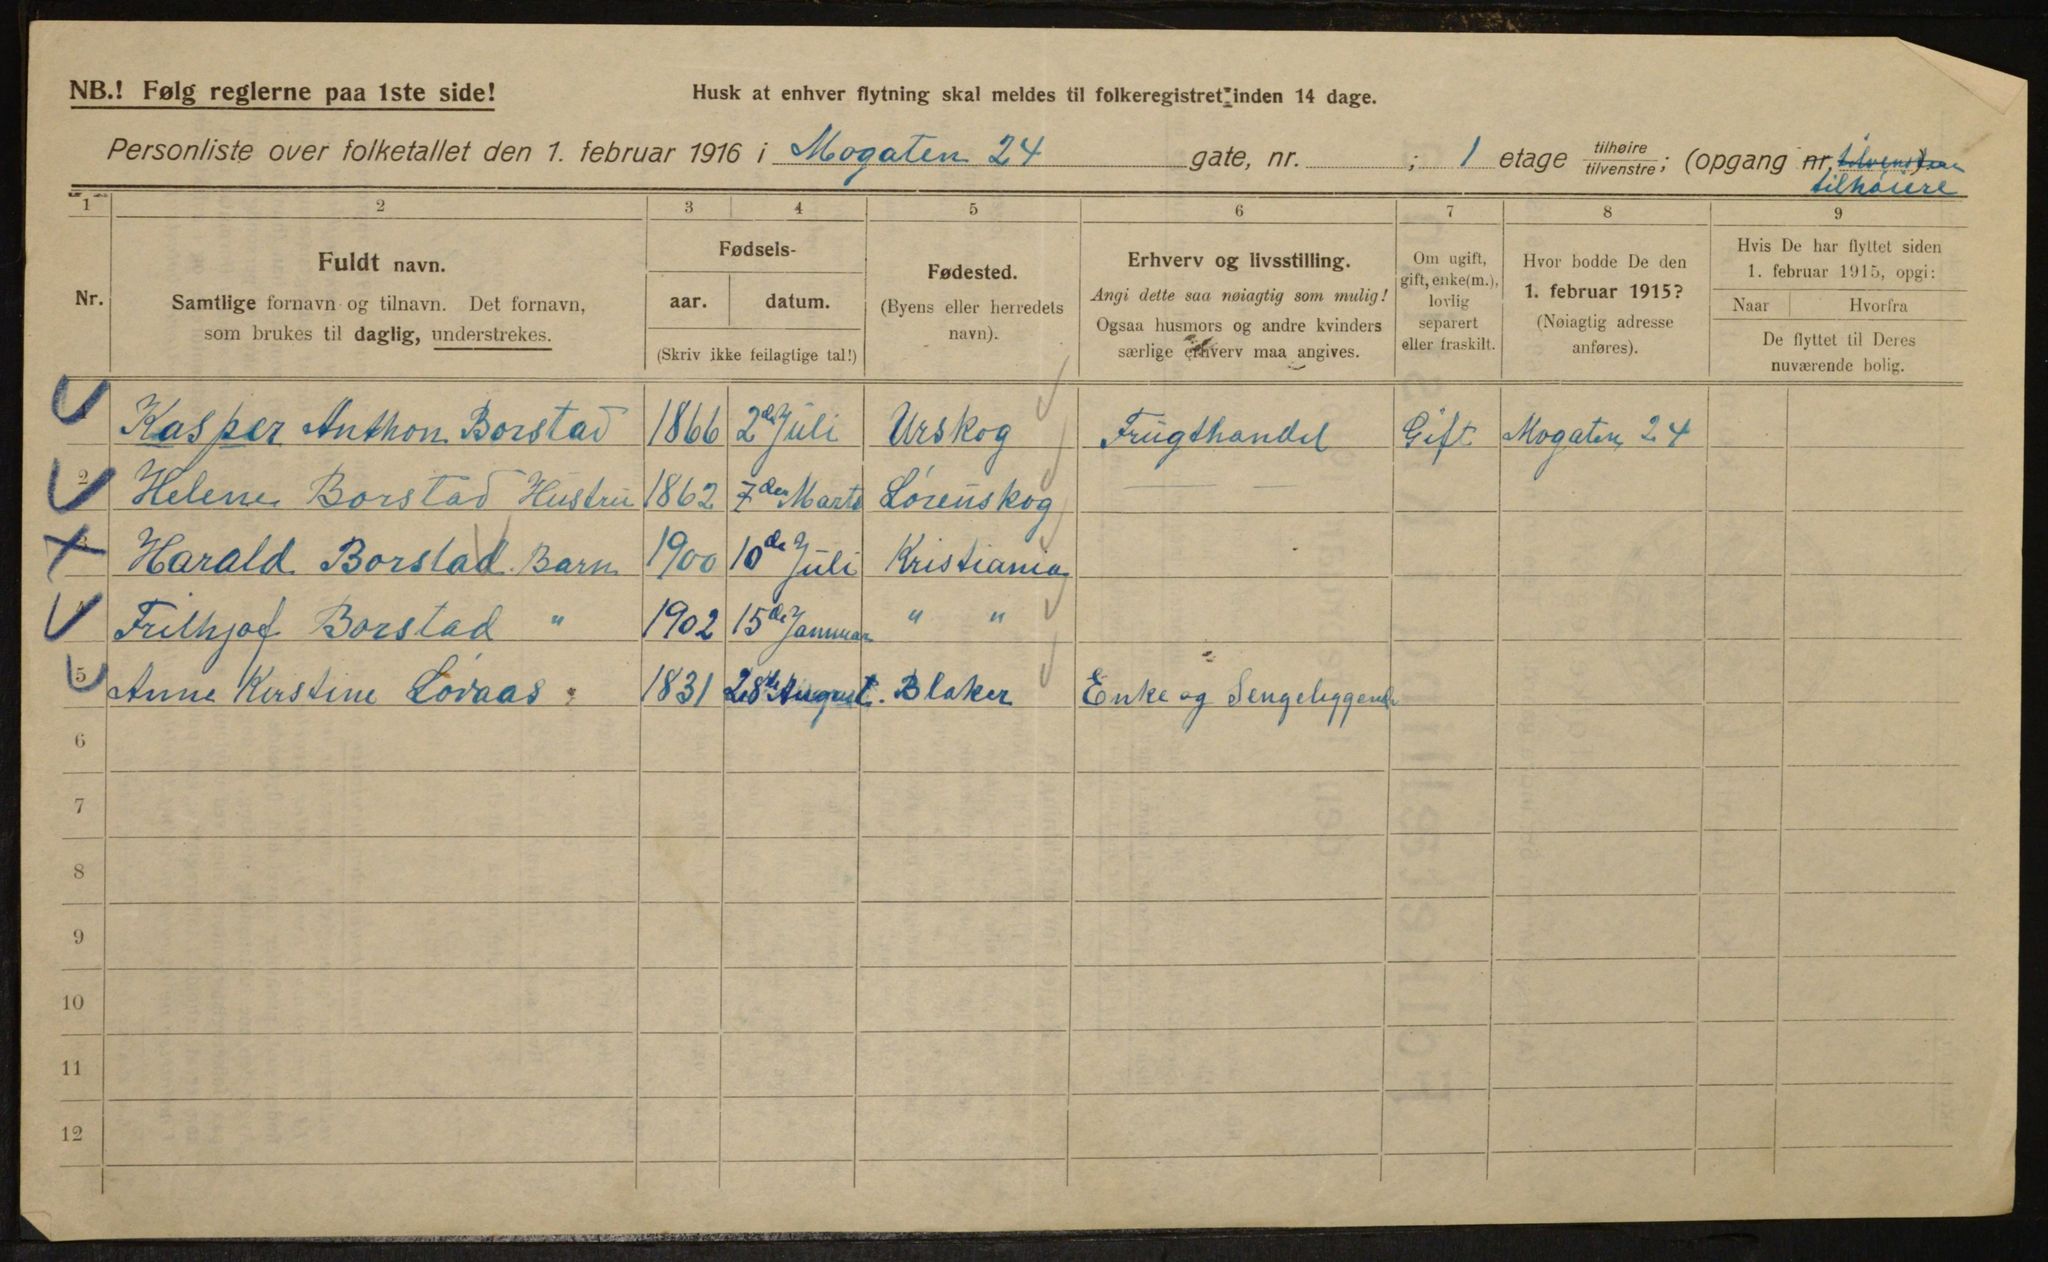 NB.! Følg reglerne paa 1ste side!
Husk at enhver flytning skal meldes til folkeregistret inden 14 dage.
Personliste over folketallet den 1. februar 1916 i Mogaten 24 gate, nr. ; 1 etage tilhøire tilvenstre; (opgang nr. tilvenstre)
tilhøiere
1 2 3 4 5 6 7 8 9
Nr.
Fuldt navn.
Samtlige fornavn og tilnavn. Det fornavn,
som brukes til daglig, understrekes.
Fødsels-
aar. datum.
(Skriv ikke feilagtige tal!)
Fødested.
(Byens eller herredets
navn).
Erhverv og livsstilling.
Angi dette saa nøiagtig som mulig!
Ogsaa husmors og andre kvinders
særlige erhverv maa angives.
Om ugift,
gift, enke(m.),
lovlig
separert
eller fraskilt.
Hvor bodde De den
1. februar 1915?
(Nøiagtig adresse
anføres).
Hvis De har flyttet siden
1. februar 1915, opgi:
Naar Hvorfra
De flyttet til Deres
nuværende bolig.
Kasper Anthon Borstad 1866 2de Juli Urskog Frugthandel Gift Mogaten 24
2 Helene Borstad Hustru 1862 7de Marts Lørenskog — —
3 Harald Borstad Barn 1900 10de Juli Kristiania
4 Frithjof Borstad " 1902 15de Januar " "
5 Anne Kirstine Løvaas 1831 28de August. Blaker Enke og Sengeliggende
6
7
8
9
10
11
12